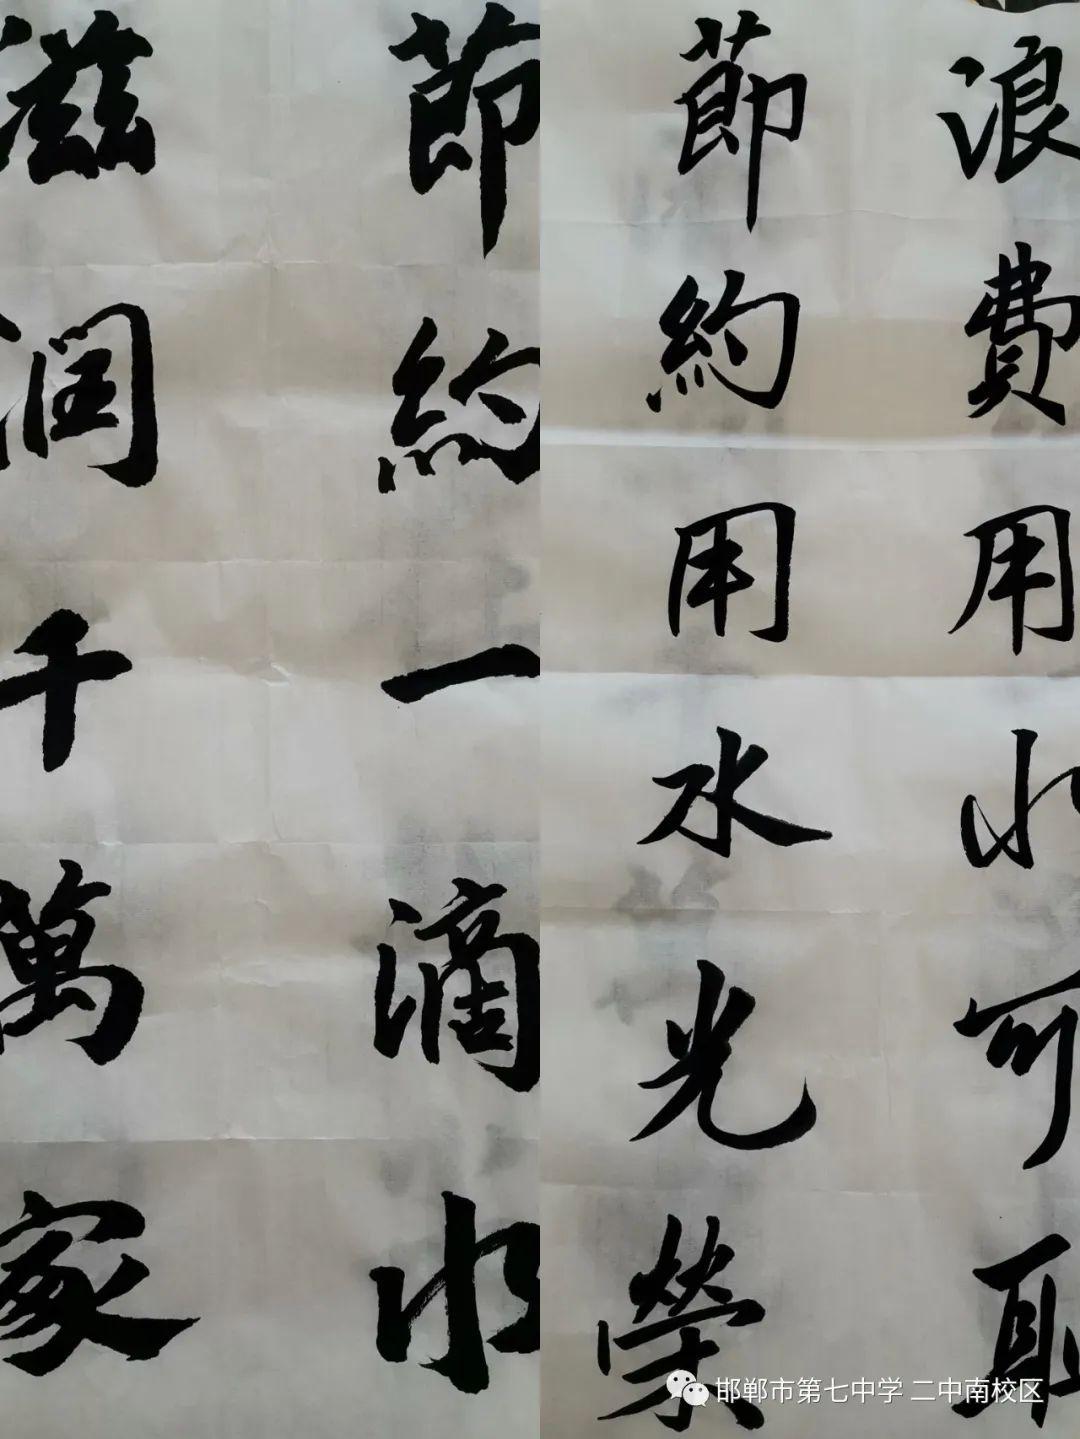 節約一滴水
滋润千萬家
浪費用水可耻
節約用水光榮
邯郸市第七中学 二中南校区